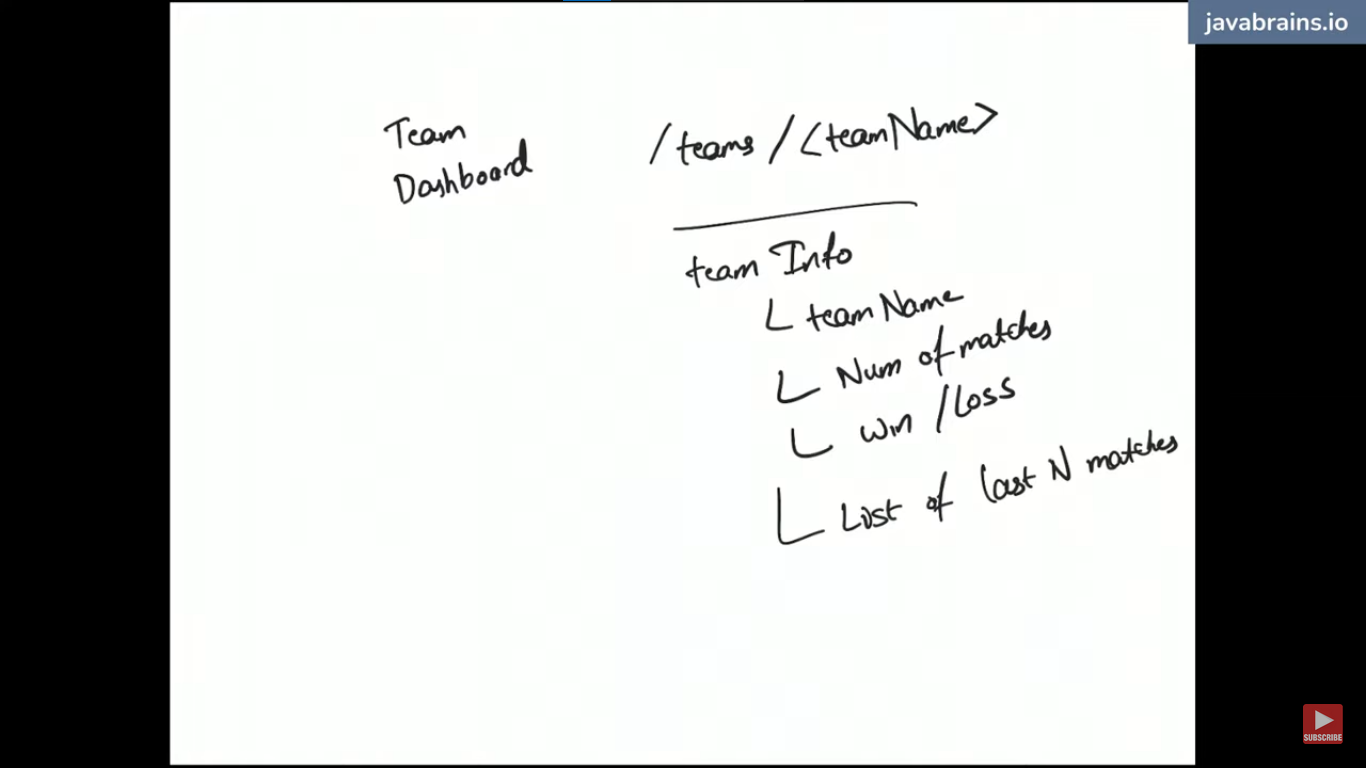 javabrains.io
Team
Dashboard
/teams/<teamName>
team Info
teamName
Num of matches
Win/Loss
List of last N matches
SUBSCRIBE